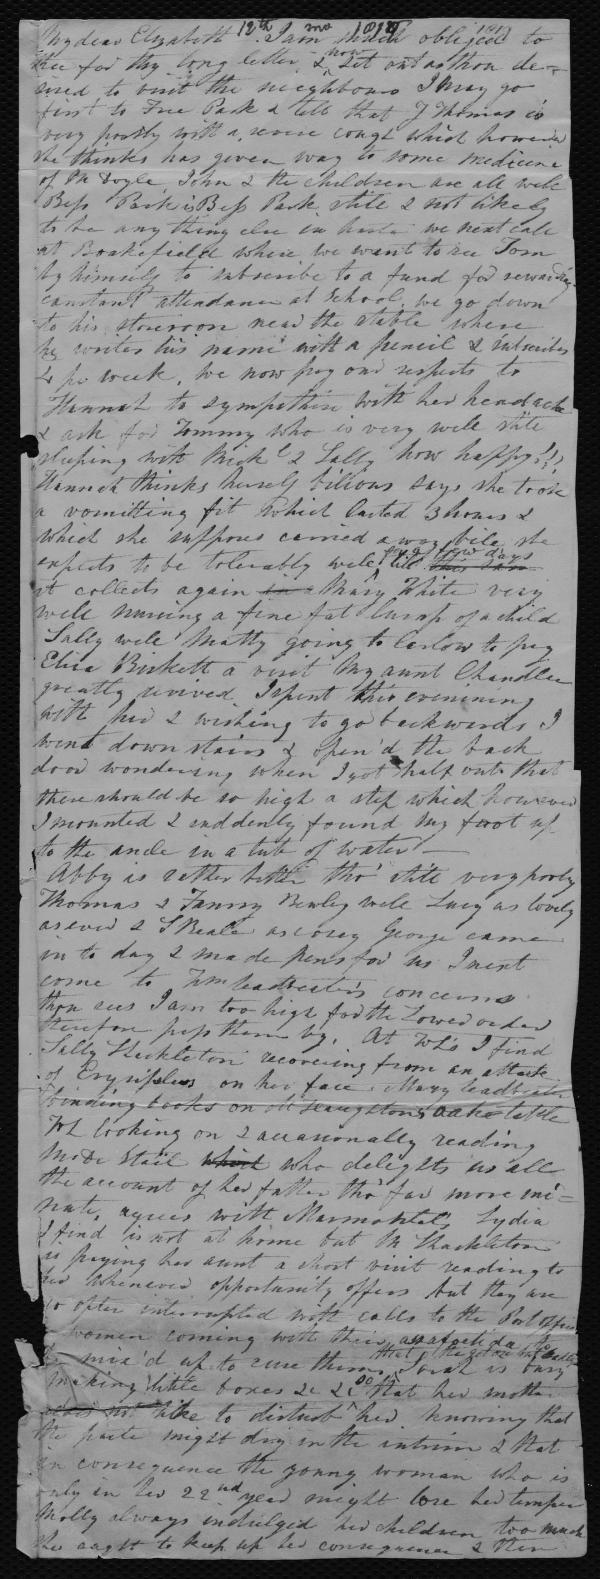 My dear Elizabeth 12th mo 1818 1817
I am much obliged to
thee for thy long letter, & now set out as thou de=
sired to visit the neighbours I may go
first to Free Park & tell that J Thomas is
very poorly with a severe cough which however
she thinks has given way to some medicine
of Dr Doyle, John & the children are all well
Bess Park is Bess Park still & not likely
to be any thing else in haste we next call
at Boakefield where we want to see Tom
by himself to subscribe to a fund for rewarding
constant attendance at school, we go down
to his storeroom near the stable where
he writes his name with a pencil & subscribes
pr week, we now pay our respects to
Hannah to sympathise with her headache
& ask for Tommy who is very well still
sleeping with Mick & Sally how happy!!!
Hannah thinks herself bilious says she took
a vomitting fit which lasted 3 hours &
which she supposes carried away bile she
expects to be tolerably well for a few days till
it collects again Mary White very
well nursing a fine fat lump of a child
Sally well Matty going to Carlow to pay
Eliza Birkett a visit My aunt Chandlee
greatly revived I spent this evening
with her & wishing to go backwards I
went down stairs & open'd the back
door wondering when I got half out that
there should be so high a step which however
I mounted & suddenly found my foot up
to the ancle in a tub of water —
Abby is rather better tho' still very poorly
Thomas & Fanny Bewley well Lucy as lovely
as ever & S Beale as cosey George came
in to day & made pens for us I next
come to Wm Leadbeater's concerns
thou sees I am too high for the Lower order
therefore pass them by, At WL's I find
Sally Shackleton recovering from an attack
of Erysipelas on her face Mary Leadbeater
binning books on old little
WL looking on & occasionally reading
Mde Stael which who delights us all
the account of her father tho far more mi=
nute, agrees with Marmontel's, Lydia
I find is not at home but M Shackleton
is paying her aunt a short visit reading to
her whenever opportunity offers but they are
so often interrupted with calls to the Post Office
& women coming with their assafoetida to
be mix'd up to cure them, that Sarah is busy
making little boxes &c &c so that her mother
does not like to disturb her knowing that
the paste might dry in the intrim & that
in consequence the young woman who is
only in her 22nd year might lose her temper
Molly always indulged her children too much
She ought to keep up her consequence & then